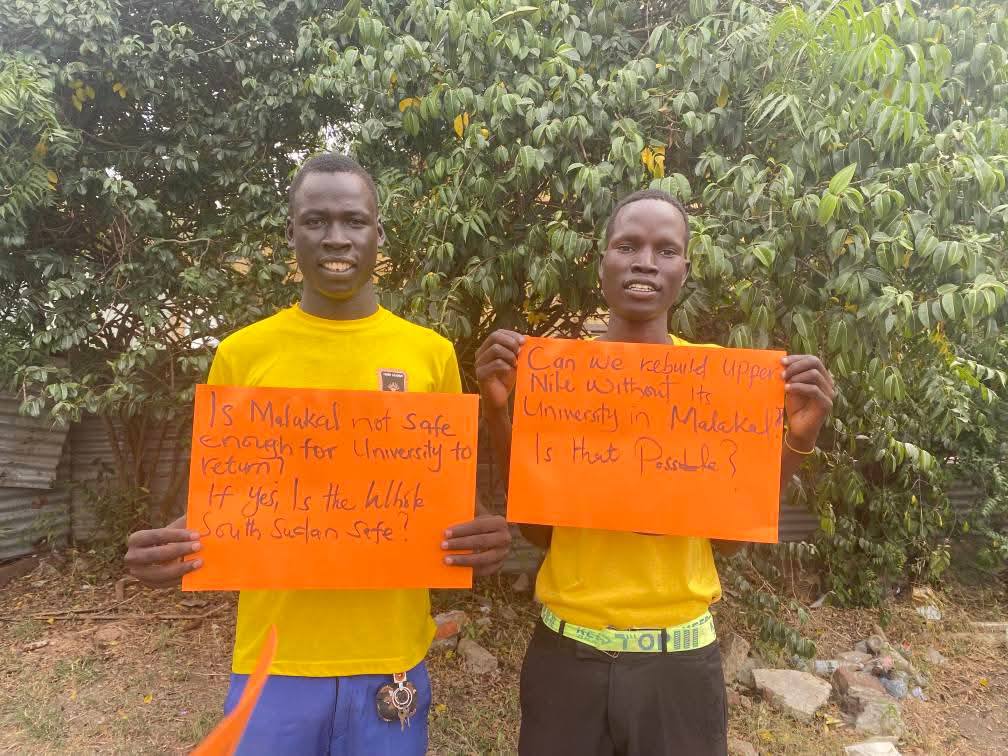 Is Malakal not safe
enough for University to
return?
If yes, Is the Whole
South Sudan safe?
Can we rebuild Upper
Nile without Its
University in Malakal?
Is that Possible?